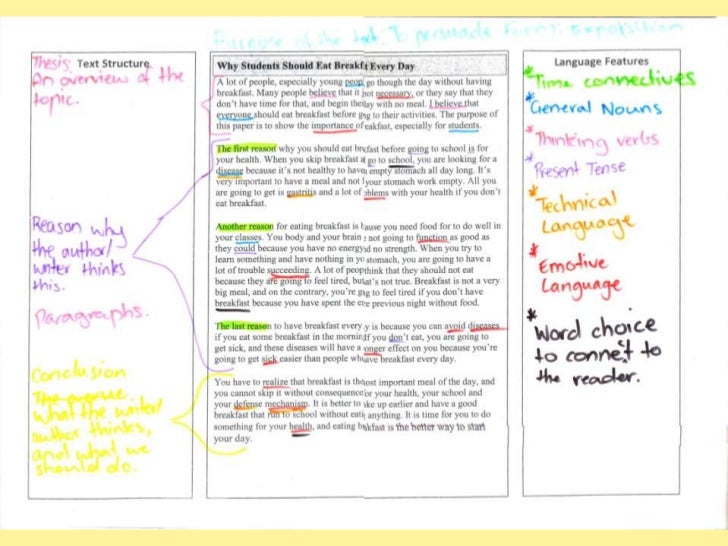 Purpose of the text: To persuade Form: Exposition
Thesis: Text Structure
An overview of the
topic.
Reason why
the author/
writer thinks
this.
Paragraphs.
Conclusion
What the writer/
author thinks,
and what we
should do.
Why Students Should Eat Breakfst Every Day
A lot of people, especially young peopl go though the day without having
breakfast. Many people believe that it not necessary, or they say that they
don't have time for that, and begin the day with no meal. I believe that
everyone should eat breakfast before gog to their activities. The purpose of
this paper is to show the importance of eakfast, especially for students.
The first reason why you should eat brefast before going to school is for
your health. When you skip breakfast a go to school, you are looking for a
disease because it's not healthy to have empty stomach all day long. It's
very important to have a meal and not l your stomach work empty. All you
are going to get is gastritis and a lot of oblems with your health if you don't
eat breakfast.
Another reason for eating breakfast is bause you need food for to do well in
your classes. You body and your brain not going to function as good as
they could because you have no energyd no strength. When you try to
learn something and have nothing in yo stomach, you are going to have a
lot of trouble succeeding. A lot of peopthink that they should not eat
because they are going to feel tired, buat's not true. Breakfast is not a very
big meal, and on the contrary, you're gog to feel tired if you don't have
breakfast because you have spent the ere previous night without food.
The last reason to have breakfast every y is because you can avoid diseases
if you eat some breakfast in the morninf you don't eat, you are going to
get sick, and these diseases will have a onger effect on you because you're
going to get sick easier than people whave breakfast every day.
You have to realize that breakfast is thost important meal of the day, and
you cannot skip it without consequence or your health, your school and
your defense mechanism. It is better to ke up earlier and have a good
breakfast that run to school without eati anything. It is time for you to do
something for your health, and eating bukfast is the better way to start
your day.
Language Features
* Time connectives
* General Nouns
* Thinking verbs
* Present Tense
* Technical
Language
* Emotive
Language
* Word choice
to connect to
the reader.